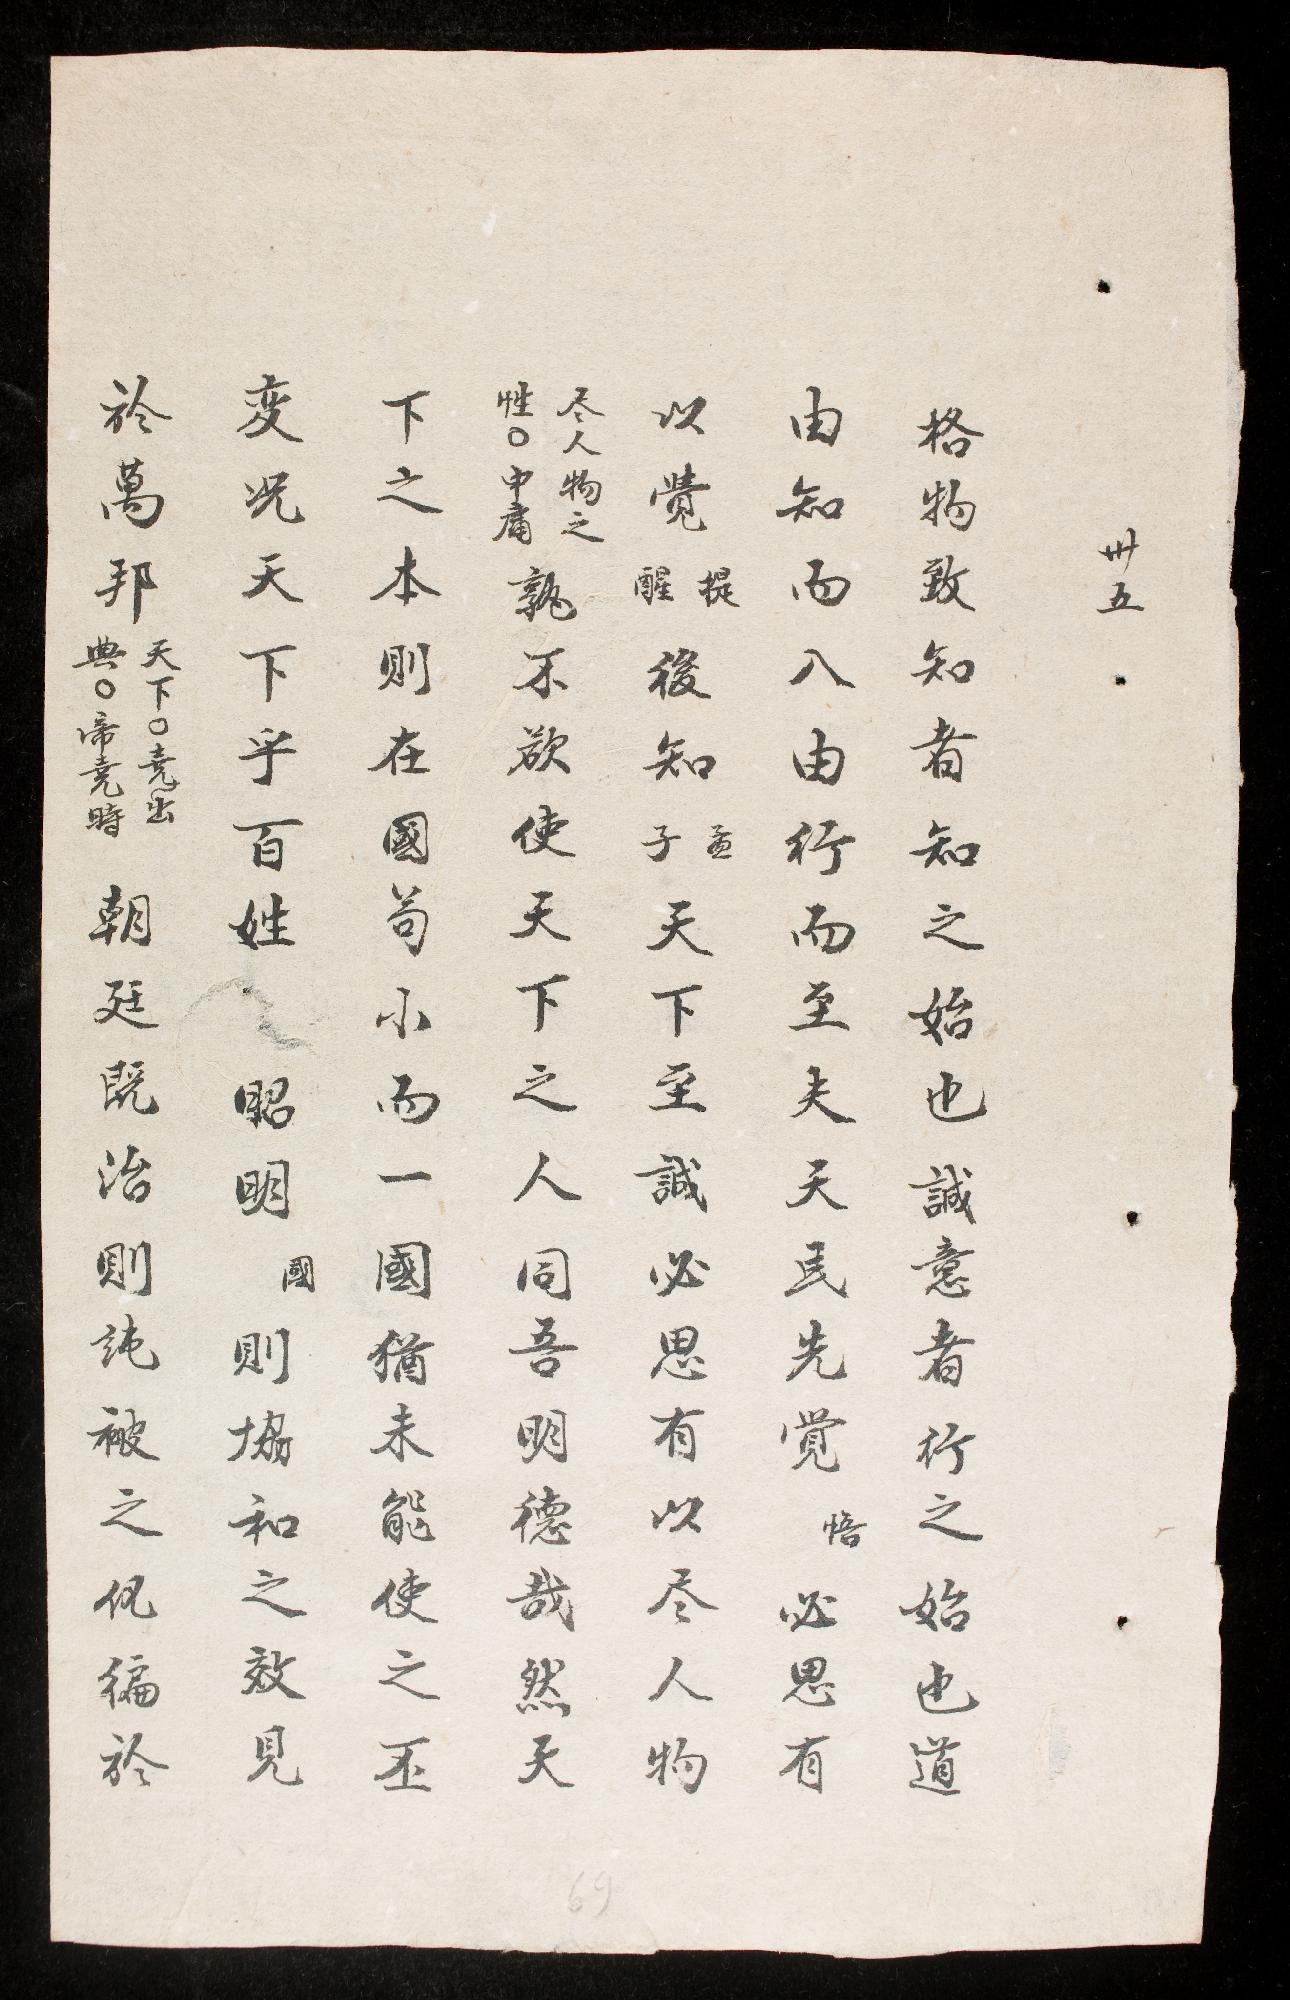 卅五
格物致知者知之始也誠意者行之始也道
由知而入由行而至夫天民先覺悟必思有
以覺提醒後知孟子天下至誠必思有以尽人物
尽人物之性〇中庸孰不欲使天下之人同吾明德哉然天
下之本則在國苟小而一國猶未能使之丕
変况天下乎百姓昭明國則協和之效見
於萬邦天下〇堯出典〇帝堯時朝廷既治則純被之化徧於
69